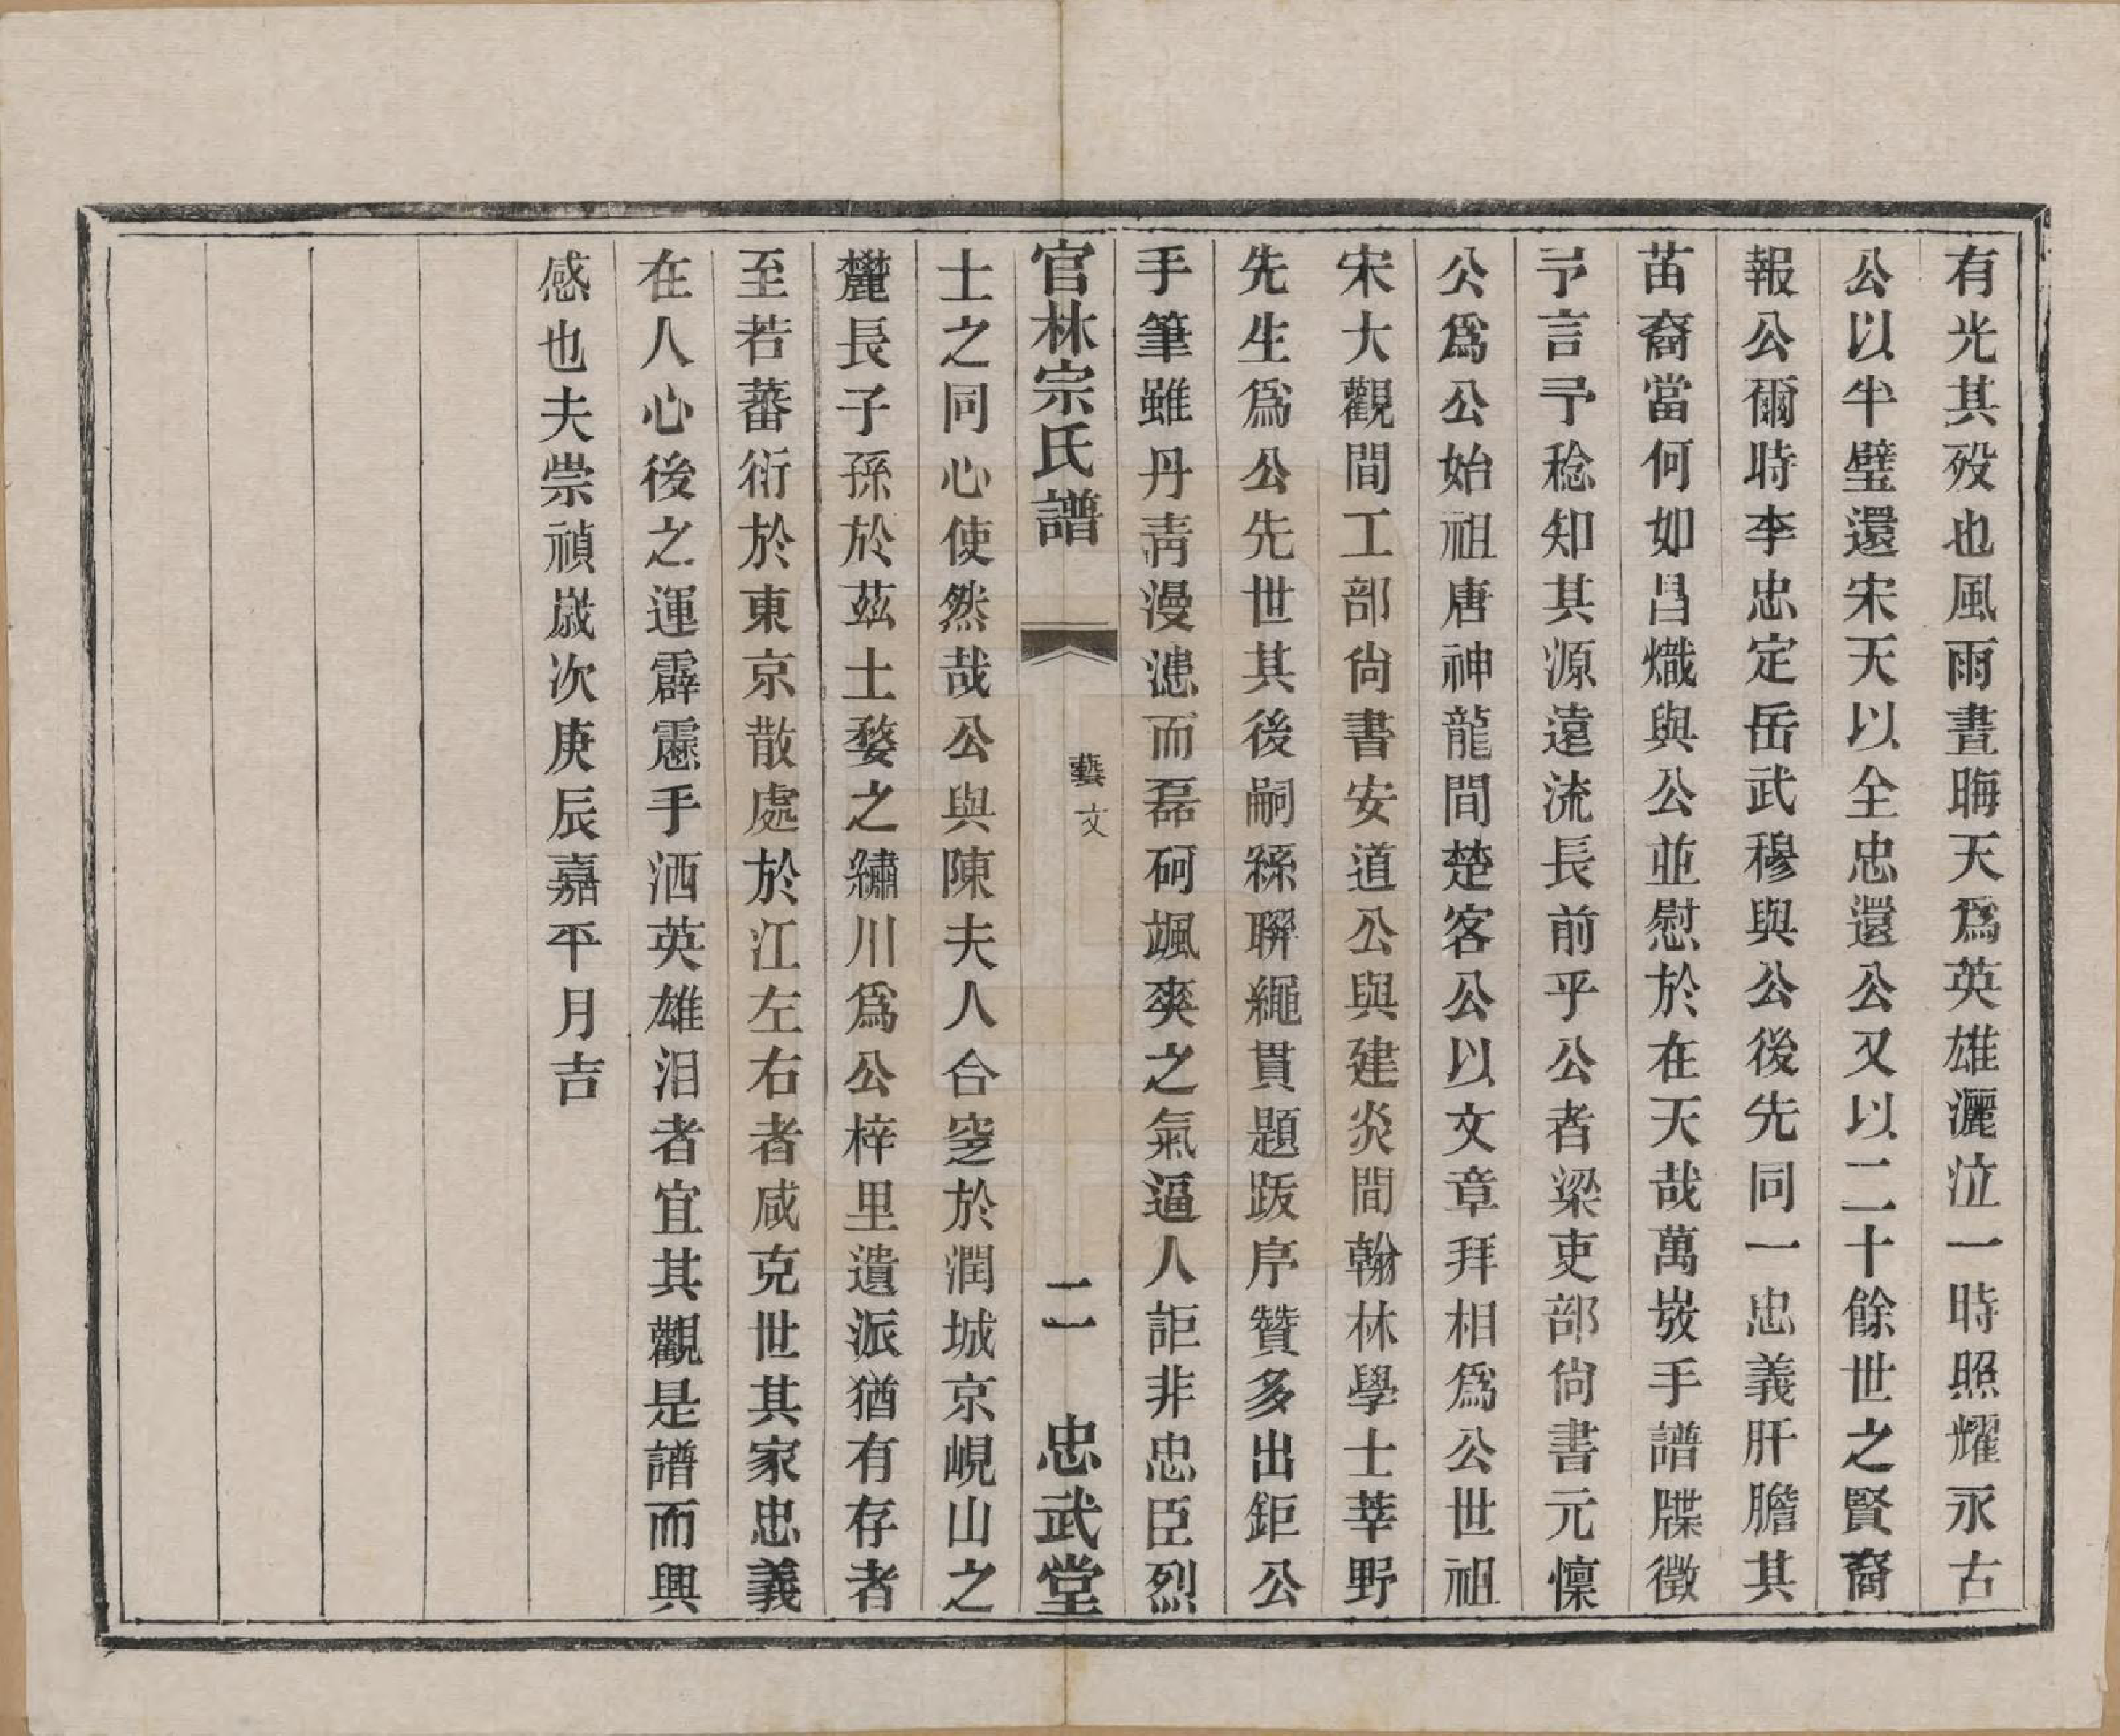 有光其歿也風雨晝晦天爲英雄灑泣一時照耀永古
公以半璧還宋天以全忠還公又以二十餘世之賢裔
報公爾時李忠定岳武穆與公後先同一忠義肝膽其
苗裔當何如昌熾與公並慰於在天哉萬㞶手譜牒徵
予言予稔知其源遠流長前乎公者梁吏部尙書元懍
公爲公始祖唐神龍間楚客公以文章拜相爲公世祖
宋大觀間工部尙書安道公與建炎間翰林學士莘野
先生爲公先世其後嗣繇聯繩貫題跋序贊多出鉅公
手筆雖丹靑漫漶而磊砢颯爽之氣逼人詎非忠臣烈
官林宗氏譜
藝文
二
忠武堂
士之同心使然哉公與陳夫人合窆於潤城京峴山之
麓長子孫於茲土婺之繡川爲公梓里遺派猶有存者
至若蕃衍於東京散處於江左右者咸克世其家忠義
在人心後之運霹靂手洒英雄泪者宜其觀是譜而興
感也夫崇禎歲次庚辰嘉平月吉